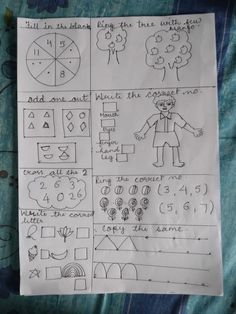 Fill in the blank
4
11
8
Ring the tree with few
mango
odd one out
Write the correct no.
Mouth
Eyes
finger
hand
leg
Cross all the 2
2 6 3
4 0 2 6
Ring the correct no.
(3, 4, 5)
(5, 6, 7)
Write the correct
letter
Copy the same.